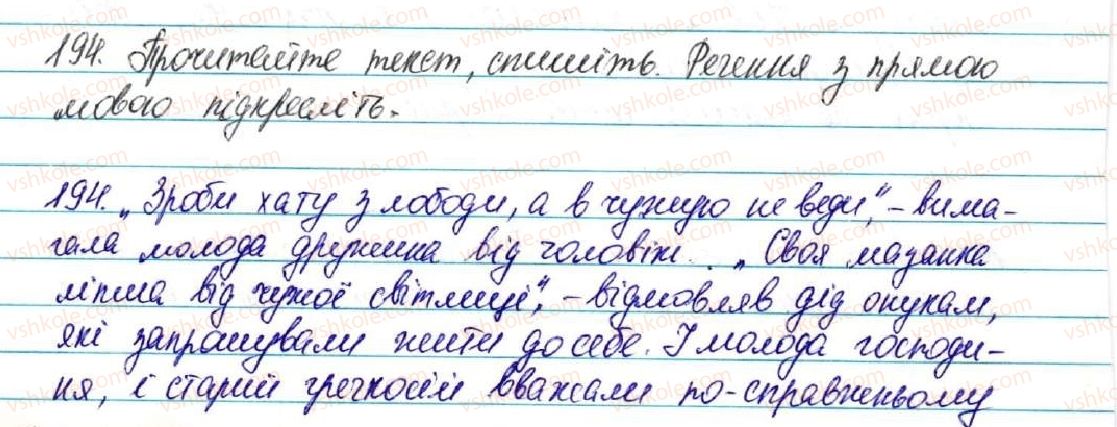 194. Прочитайте текст, спишіть. Речення з прямою
мовою підкресліть.
194. „Зроби хату з лободи, а в чужую не веди", – вима-
гала молода дружина від чоловік. . „Своя мазанка
ліпша від чужої світлиці", – відмовляв дід онукам,
які запрошували жити до себе. І молода господи-
ня, і старий гречкосій вважали по-справжньому